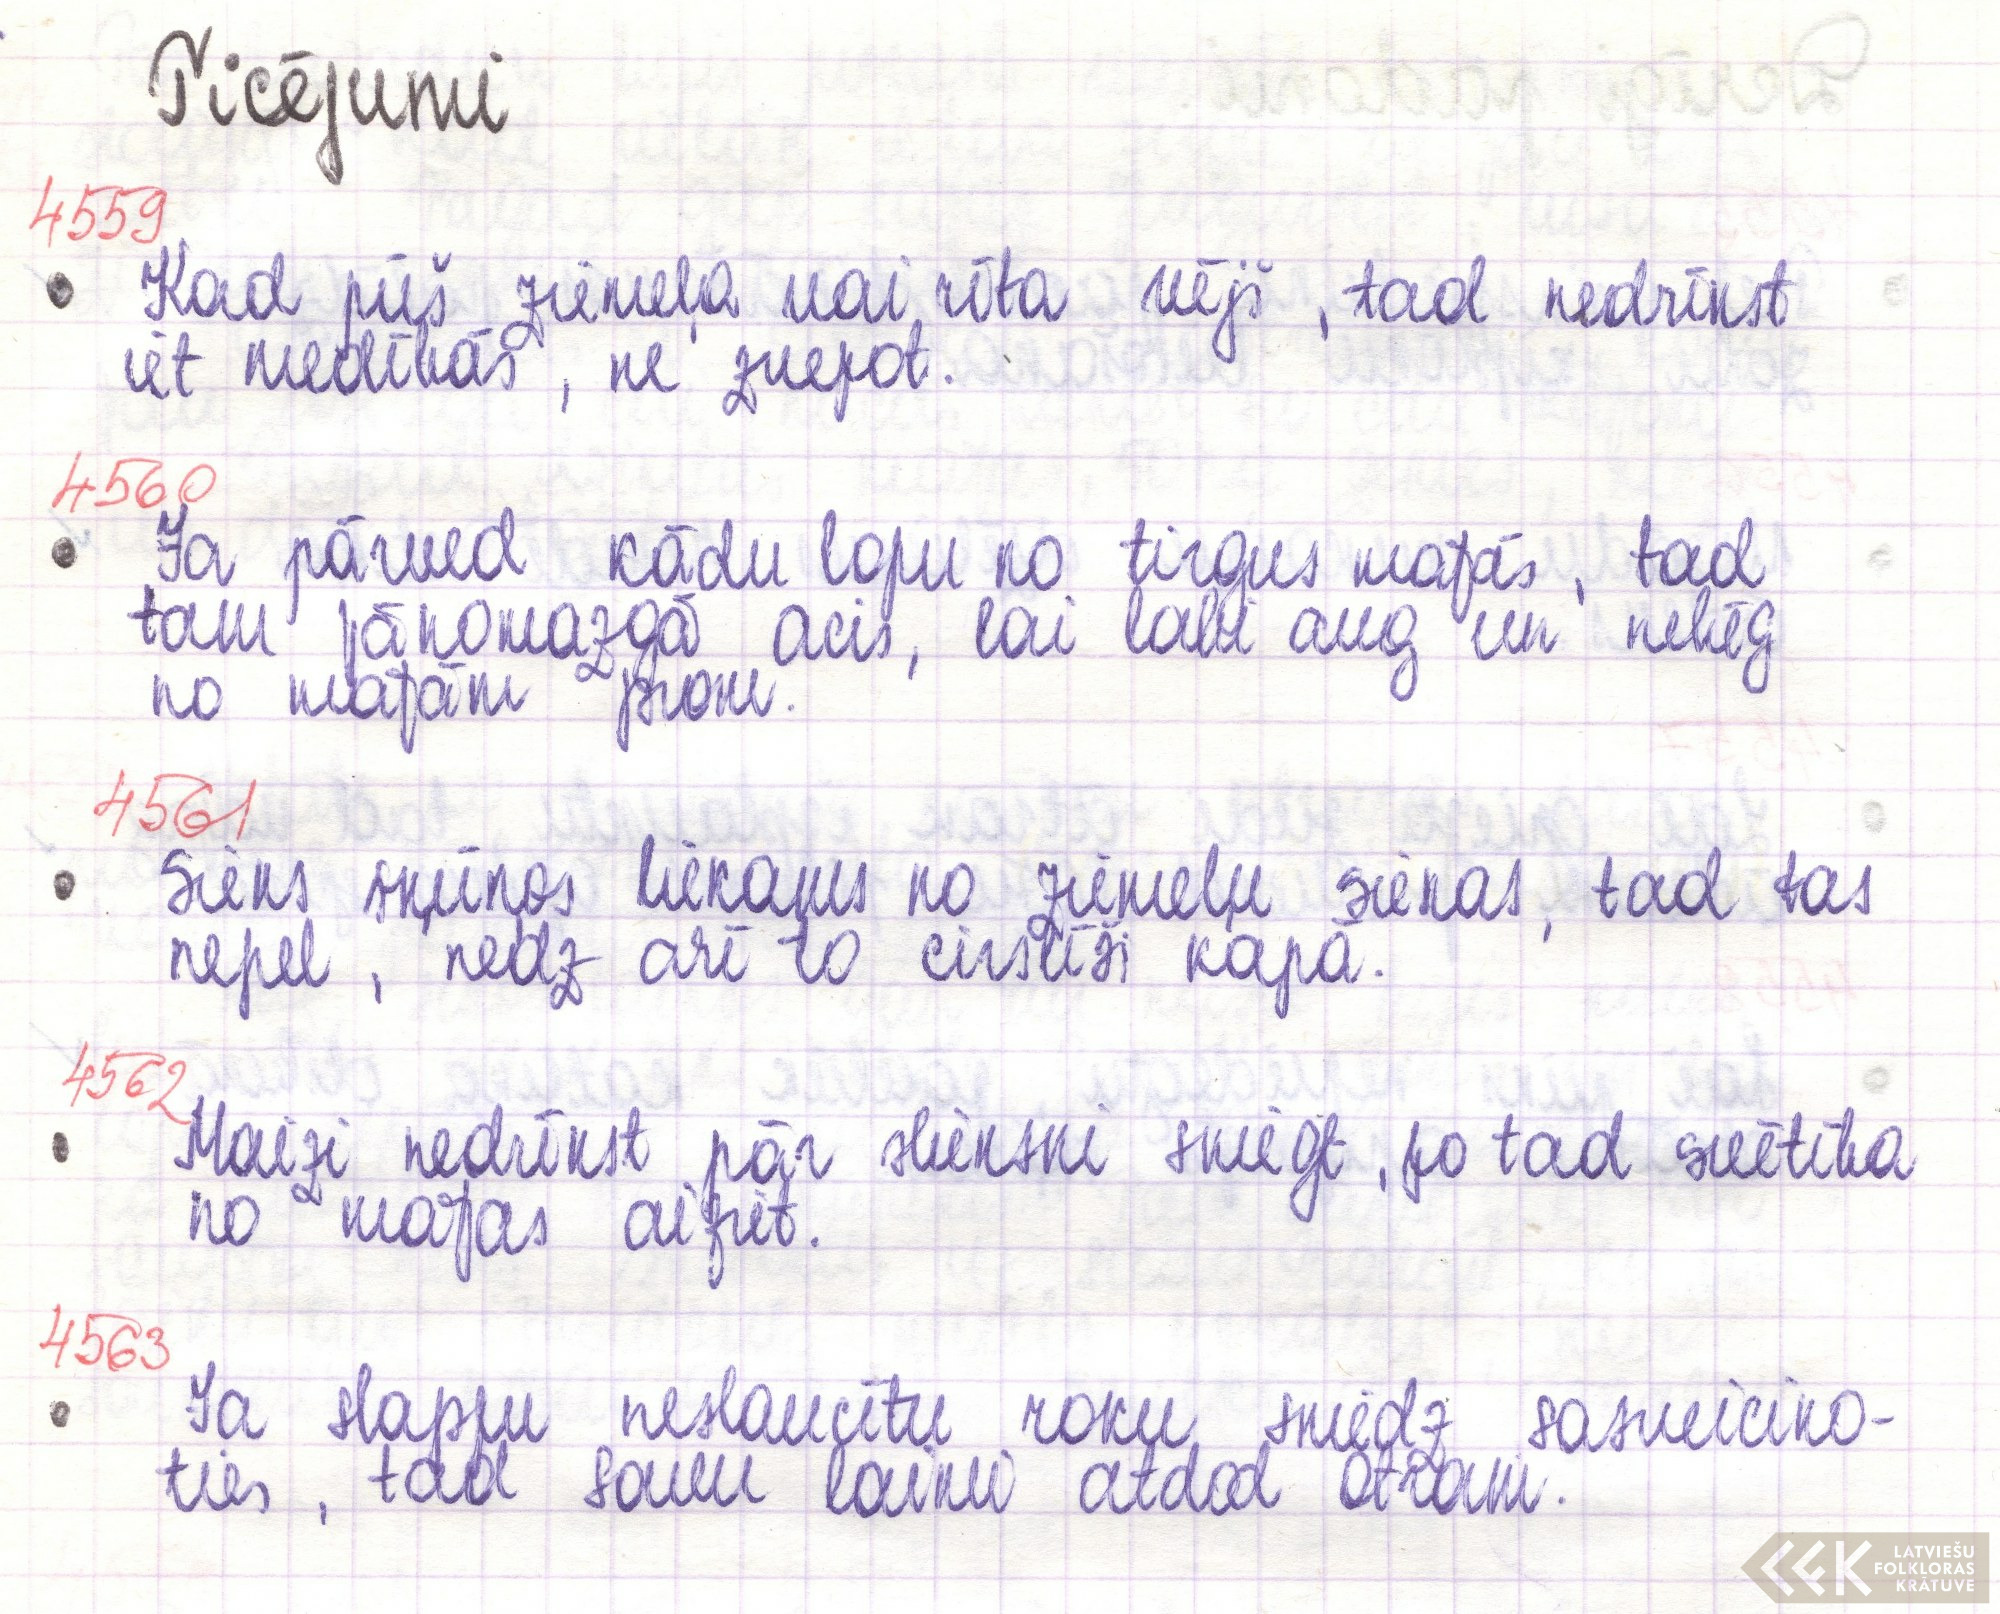 Ticējumi
4559
• Kad pūš ziemeļa vai rīta vējš, tad nedrīkst
iet medībās, ne zvejot.
4560
• Ja pārved kādu lopu no tirgus mājās, tad
tam jānomazgā acis, lai labi aug un nebēg
no mājām prom.
4561
• Siens šķūņos liekams no ziemeļu sienas, tad tas
nepel, nedz arī to cirslīši kapā.
4562
• Maizi nedrīkst pār slieksni sniegt, jo tad svētība
no mājas aiziet.
4563
• Ja slapju neslaucītu roku sniedz sasveicino-
ties, tad savu laimi atdod otram.
LATVIEŠU
FOLKLORAS
KRĀTUVE